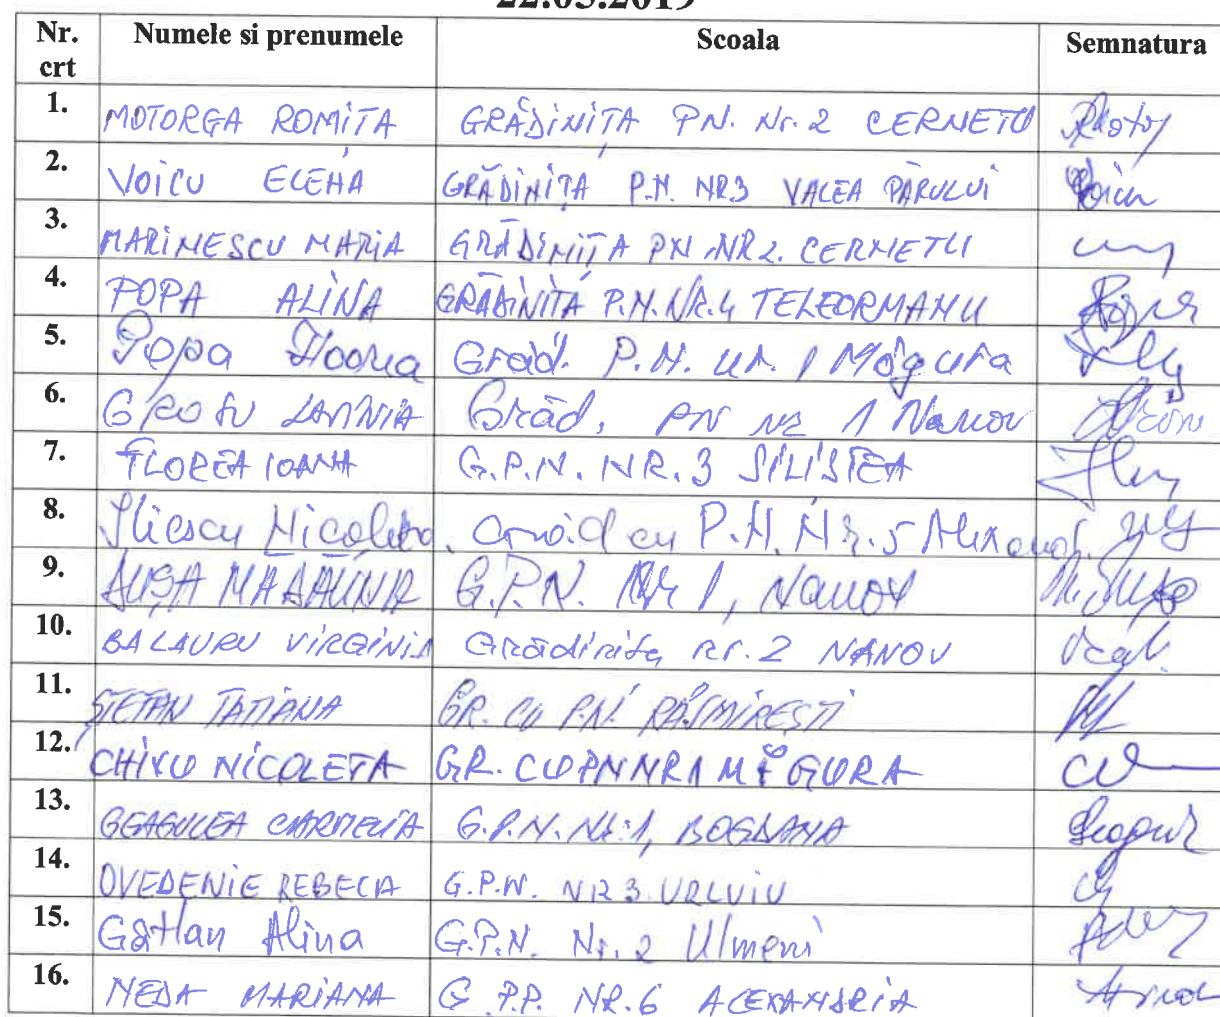 22.05.2019
Nr. crt Numele si prenumele Scoala Semnatura
1. MOTORGA ROMIȚA GRĂDINIȚA PN. Nr. 2 CERNETU
2. VOICU ELENA GRĂDINIȚA P.N. NR3 VALEA PARULUI
3. MARINESCU MARIA GRĂDINIȚA PN NR2. CERNETU
4. POPA ALINA GRĂDINIȚA P.N. NR.4 TELEORMANU
5. Popa Floarea Grad. P.N. nr. 1 Măgura
6. Grăd. PN nr 1 Nanov
7. FLOREA IOANA G.P.N. NR.3 SILISTEA
8. Iliescu Nicoleta P.N. Nr. 5
9. MADALINA G.P.N. NR 1, Nanov
10. BALAURU VIRGINIA Grădinița nr. 2 NANOV
11. ȘTEFAN TATIANA GR. CU P.N. RĂSMIREȘTI
12. CHIVU NICOLETA GR. CU PN NR1 MĂGURA
13. GEAGULEA CARMELIA G.P.N. NR.1, BOGDANA
14. OVEDENIE REBECA G.P.N. NR 3 URLUIU
15. Gătlan Alina G.P.N. Nr. 2 Ulmeni
16. NEDA MARIANA G P.P. NR.6 ALEXANDRIA